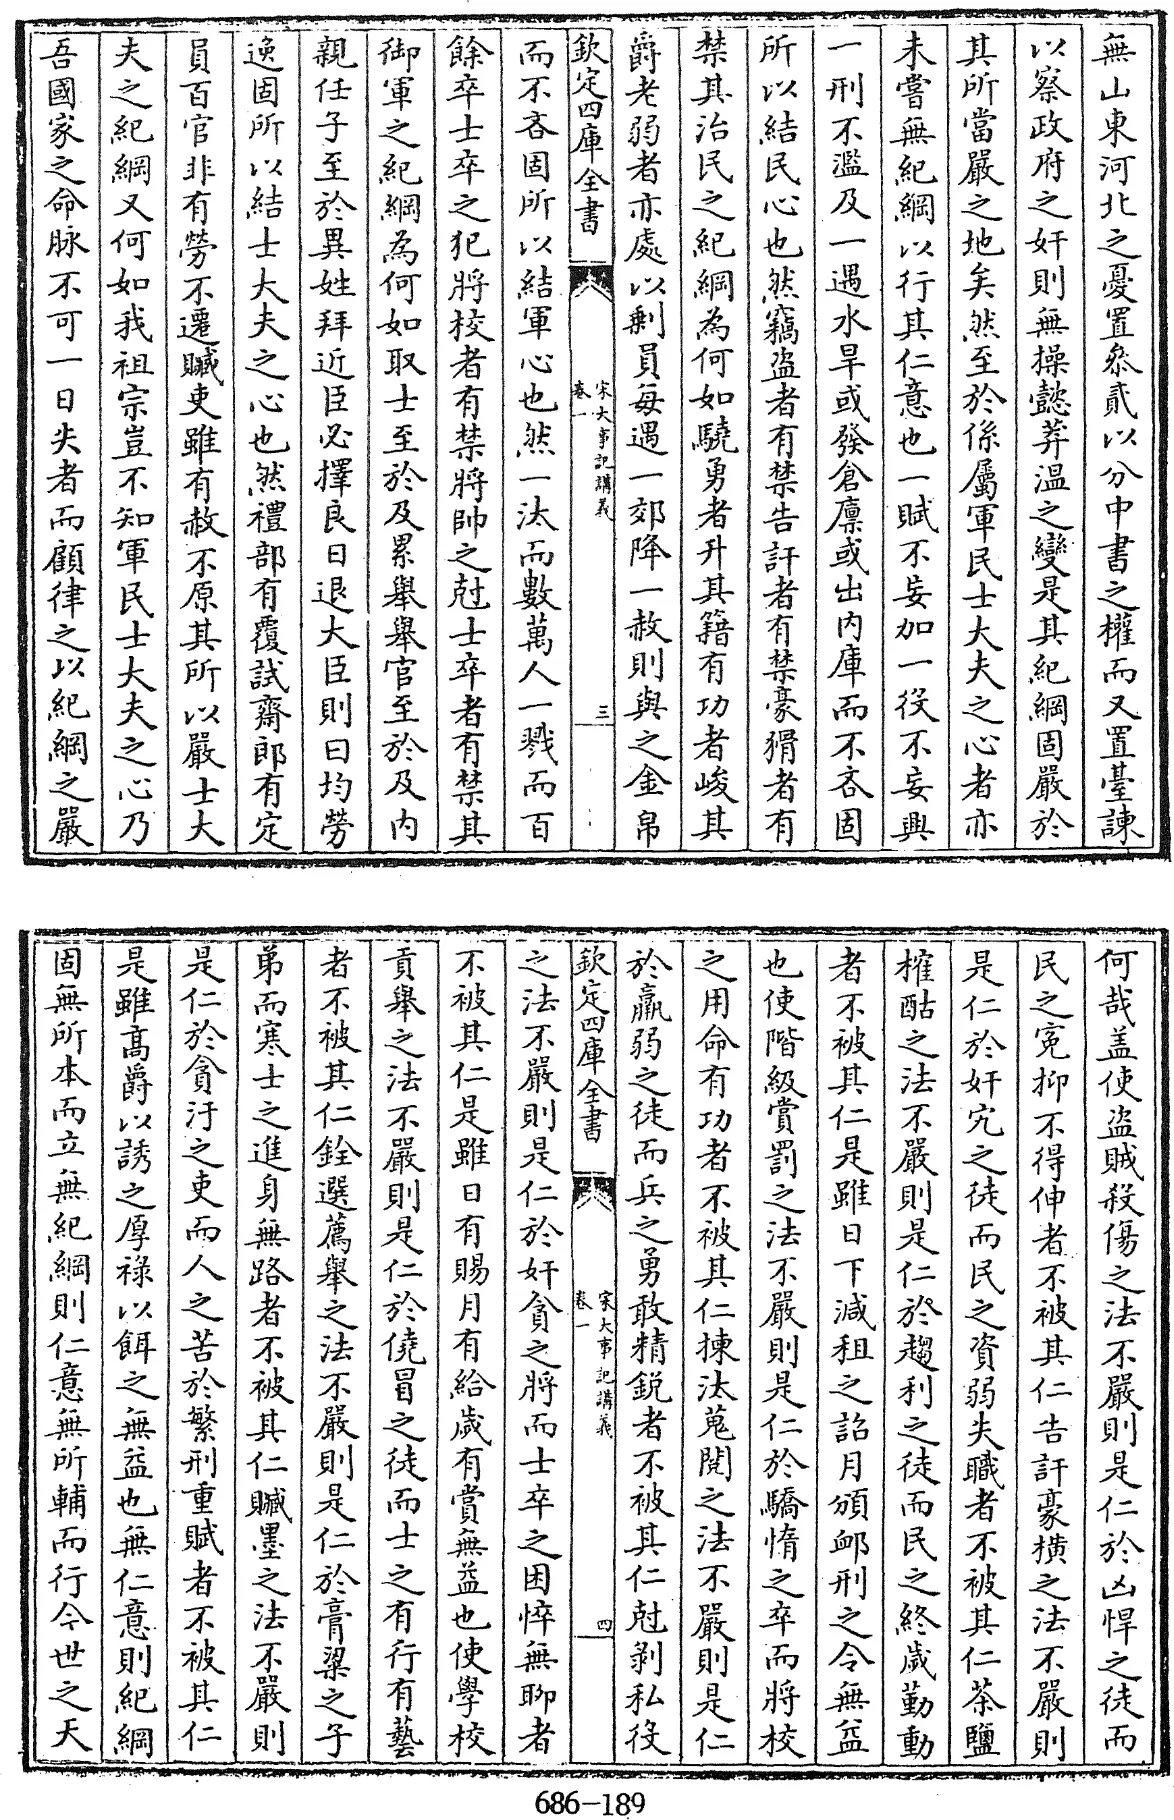 無山東河北之憂置叅貳以分中書之權而又置臺諫
以察政府之奸則無操懿莽溫之變是其紀綱固嚴於
其所當嚴之地矣然至於係屬軍民士大夫之心者亦
未嘗無紀綱以行其仁意也一賦不妄加一役不妄興
一刑不濫及一遇水旱或發倉廪或出内庫而不吝固
所以結民心也然竊盗者有禁告訐者有禁豪猾者有
禁其治民之紀綱為何如驍勇者升其籍有功者峻其
爵老弱者亦處以剩員每遇一郊降一赦則與之金帛
欽定四庫全書
宋大事記講義
卷一
三
而不吝固所以結軍心也然一汰而數萬人一戮而百
餘卒士卒之犯將校者有禁將帥之尅士卒者有禁其
御軍之紀綱為何如取士至於及累舉舉官至於及内
親任子至於異姓拜近臣必擇良日退大臣則曰均勞
逸固所以結士大夫之心也然禮部有覆試齋郎有定
員百官非有勞不遷贓吏雖有赦不原其所以嚴士大
夫之紀綱又何如我祖宗豈不知軍民士大夫之心乃
吾國家之命脉不可一日失者而顧律之以紀綱之嚴
何哉盖使盗賊殺傷之法不嚴則是仁於凶悍之徒而
民之寃抑不得伸者不被其仁告訐豪横之法不嚴則
是仁於奸宄之徒而民之資弱失職者不被其仁茶鹽
榷酤之法不嚴則是仁於趨利之徒而民之終歲勤動
者不被其仁是雖日下減租之詔月頒邺刑之令無益
也使階級賞罰之法不嚴則是仁於驕惰之卒而將校
之用命有功者不被其仁揀汰蒐閲之法不嚴則是仁
於羸弱之徒而兵之勇敢精鋭者不被其仁尅剥私役
欽定四庫全書
宋大事記講義
卷一
四
之法不嚴則是仁於奸貪之將而士卒之困悴無聊者
不被其仁是雖日有賜月有給歲有賞無益也使學校
貢舉之法不嚴則是仁於僥冒之徒而士之有行有藝
者不被其仁銓選薦舉之法不嚴則是仁於膏粱之子
弟而寒士之進身無路者不被其仁贓墨之法不嚴則
是仁於貪汙之吏而人之苦於繁刑重賦者不被其仁
是雖高爵以誘之厚祿以餌之無益也無仁意則紀綱
固無所本而立無紀綱則仁意無所輔而行今世之天
686-189